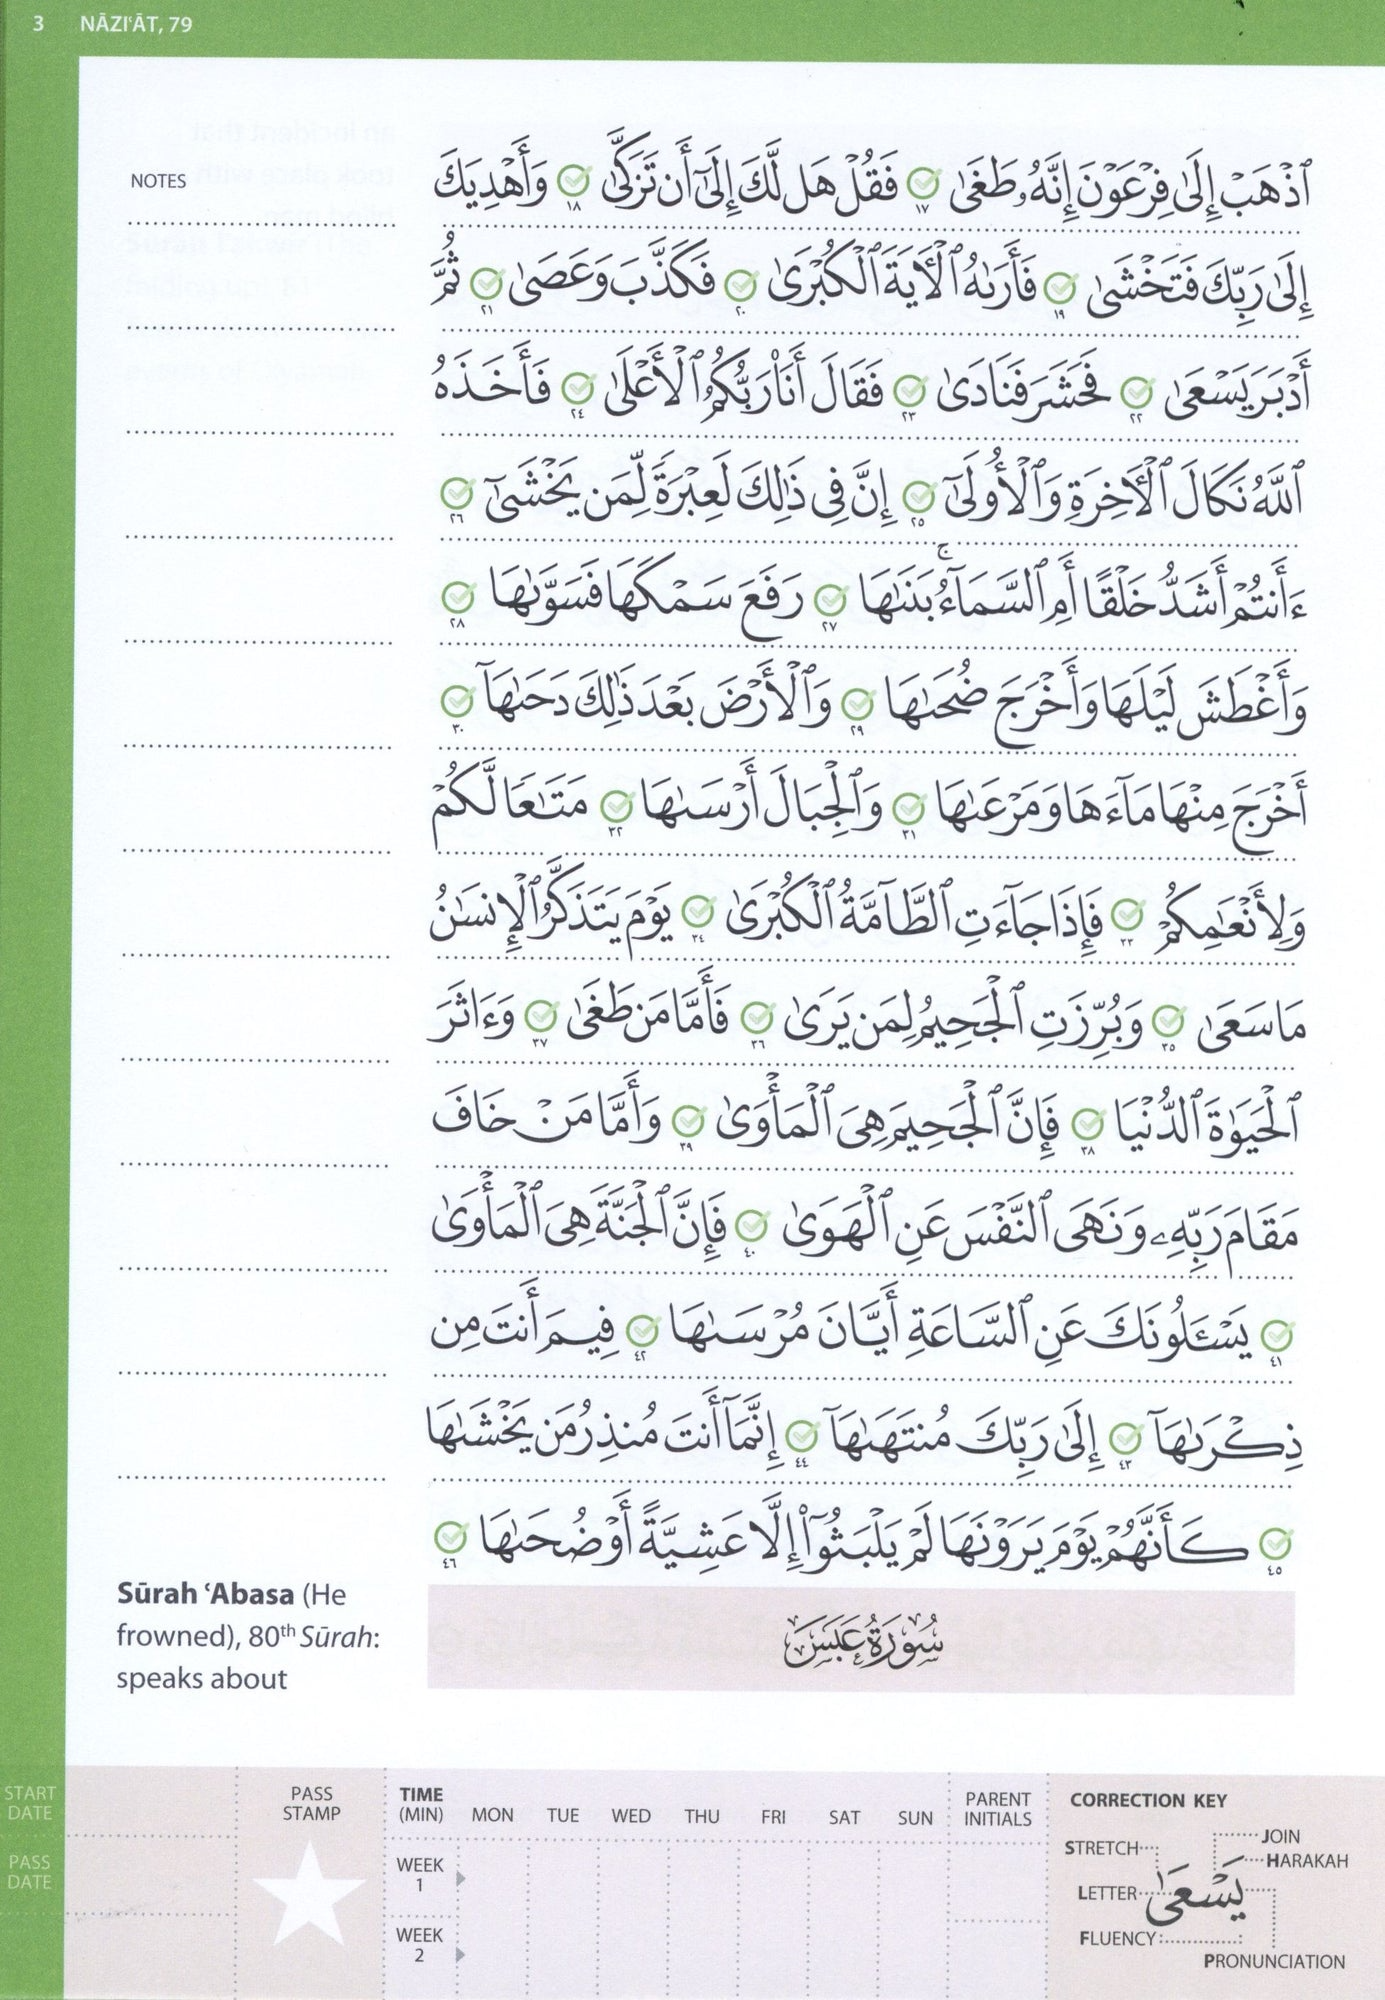 3 NĀZIʿĀT, 79
NOTES
ٱذْهَبْ إِلَىٰ فِرْعَوْنَ إِنَّهُۥ طَغَىٰ ١٧ فَقُلْ هَل لَّكَ إِلَىٰٓ أَن تَزَكَّىٰ ١٨ وَأَهْدِيَكَ
إِلَىٰ رَبِّكَ فَتَخْشَىٰ ١٩ فَأَرَىٰهُ ٱلْأٓيَةَ ٱلْكُبْرَىٰ ٢٠ فَكَذَّبَ وَعَصَىٰ ٢١ ثُمَّ
أَدْبَرَ يَسْعَىٰ ٢٢ فَحَشَرَ فَنَادَىٰ ٢٣ فَقَالَ أَنَا۠ رَبُّكُمُ ٱلْأَعْلَىٰ ٢٤ فَأَخَذَهُ
ٱللَّهُ نَكَالَ ٱلْأٓخِرَةِ وَٱلْأُولَىٰٓ ٢٥ إِنَّ فِى ذَٰلِكَ لَعِبْرَةً لِّمَن يَخْشَىٰٓ ٢٦
ءَأَنتُمْ أَشَدُّ خَلْقًا أَمِ ٱلسَّمَآءُ ۚ بَنَىٰهَا ٢٧ رَفَعَ سَمْكَهَا فَسَوَّىٰهَا ٢٨
وَأَغْطَشَ لَيْلَهَا وَأَخْرَجَ ضُحَىٰهَا ٢٩ وَٱلْأَرْضَ بَعْدَ ذَٰلِكَ دَحَىٰهَآ ٣٠
أَخْرَجَ مِنْهَا مَآءَهَا وَمَرْعَىٰهَا ٣١ وَٱلْجِبَالَ أَرْسَىٰهَا ٣٢ مَتَـٰعًا لَّكُمْ
وَلِأَنْعَـٰمِكُمْ ٣٣ فَإِذَا جَآءَتِ ٱلطَّآمَّةُ ٱلْكُبْرَىٰ ٣٤ يَوْمَ يَتَذَكَّرُ ٱلْإِنسَـٰنُ
مَا سَعَىٰ ٣٥ وَبُرِّزَتِ ٱلْجَحِيمُ لِمَن يَرَىٰ ٣٦ فَأَمَّا مَن طَغَىٰ ٣٧ وَءَاثَرَ
ٱلْحَيَوٰةَ ٱلدُّنْيَا ٣٨ فَإِنَّ ٱلْجَحِيمَ هِىَ ٱلْمَأْوَىٰ ٣٩ وَأَمَّا مَنْ خَافَ
مَقَامَ رَبِّهِۦ وَنَهَى ٱلنَّفْسَ عَنِ ٱلْهَوَىٰ ٤٠ فَإِنَّ ٱلْجَنَّةَ هِىَ ٱلْمَأْوَىٰ
٤١ يَسْـَٔلُونَكَ عَنِ ٱلسَّاعَةِ أَيَّانَ مُرْسَىٰهَا ٤٢ فِيمَ أَنتَ مِن
ذِكْرَىٰهَآ ٤٣ إِلَىٰ رَبِّكَ مُنتَهَىٰهَآ ٤٤ إِنَّمَآ أَنتَ مُنذِرُ مَن يَخْشَىٰهَا
٤٥ كَأَنَّهُمْ يَوْمَ يَرَوْنَهَا لَمْ يَلْبَثُوٓا۟ إِلَّا عَشِيَّةً أَوْ ضُحَىٰهَا ٤٦
Sūrah ʿAbasa (He
frowned), 80th Sūrah:
speaks about
سُورَةُ عَبَسَ
START
DATE
PASS
DATE
PASS
STAMP
TIME
(MIN) MON TUE WED THU FRI SAT SUN
WEEK
1
WEEK
2
PARENT
INITIALS
CORRECTION KEY
STRETCH
JOIN
HARAKAH
LETTER
يَسْعَىٰ
FLUENCY
PRONUNCIATION